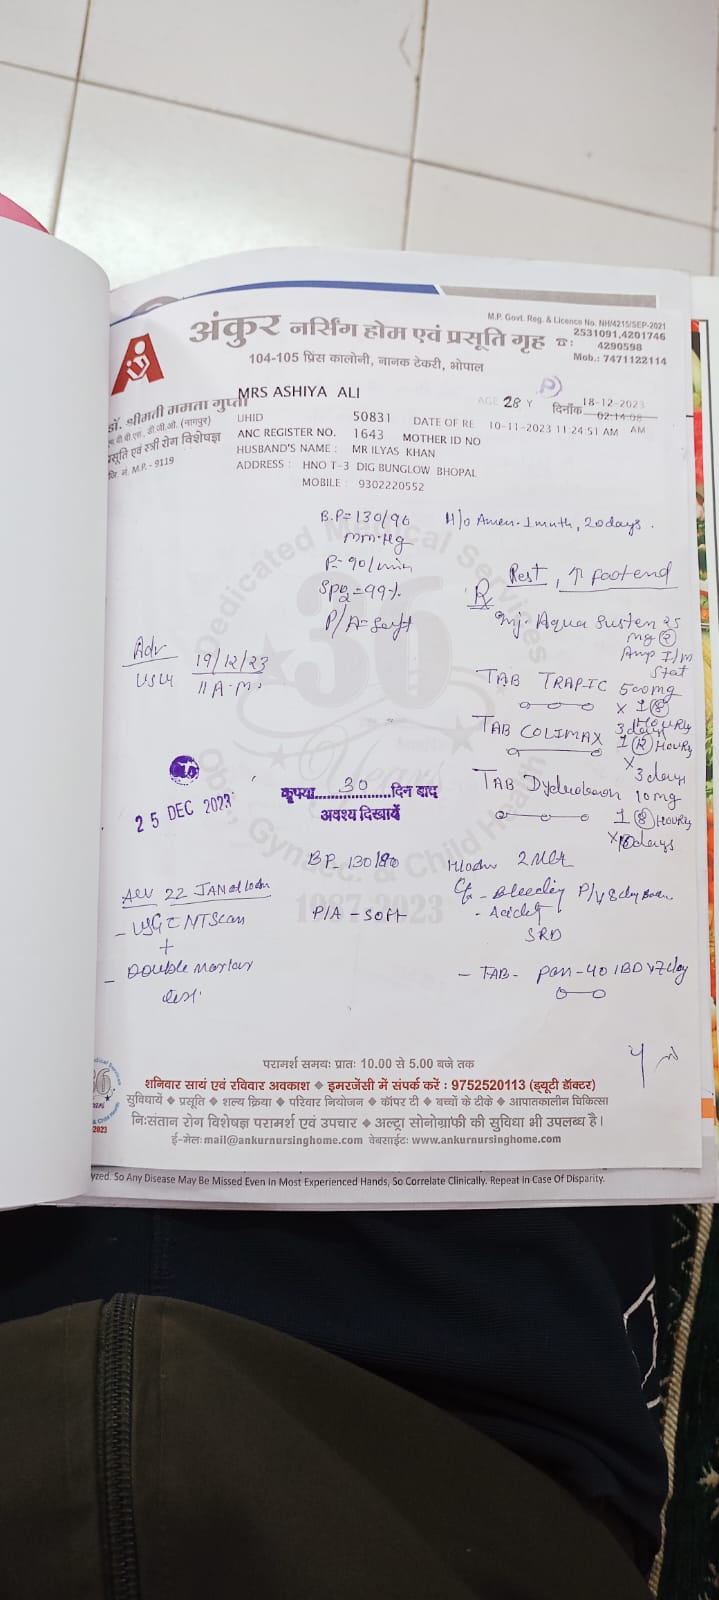 M.P. Govt. Reg. & Licence No. NH/4215/SEP-2021
अंकुर नर्सिंग होम एवं प्रसूति गृह
☎: 2531091,4201746
4290598
Mob.: 7471122114
104-105 प्रिंस कालोनी, नानक टेकरी, भोपाल
डॉ. श्रीमती ममता गुप्ता
एम.बी.बी.एस., डी.जी.ओ. (नागपुर)
प्रसूति एवं स्त्री रोग विशेषज्ञ
रजि. नं. M.P. - 9119
MRS ASHIYA ALI
AGE 28 Y
P
दिनाँक 18-12-2023
02:14:08 AM
UHID 50831 DATE OF RE 10-11-2023 11:24:51 AM
ANC REGISTER NO. 1643 MOTHER ID NO
HUSBAND'S NAME : MR ILYAS KHAN
ADDRESS : HNO T-3 DIG BUNGLOW BHOPAL
MOBILE : 9302220552
B.P=130/90
mm.Hg
P=90/min
SPO2=99%
P/A=Soft
H/o Amen. 1 month, 20days.
Rest, ↑ footend
Rx
Inj. Aqua Susten 25
mg (2)
Amp I/m
Stat
TAB TRAPIC 500mg
x 1 (8)
Hourly
3 days
TAB COLIMAX 1 (12) Hourly
x 3days
TAB Dydroboon 10mg
1 (8) Hourly
days
Adv
USG 19/12/23
11 A.M.
25 DEC 2023
कृपया 30 दिन बाद
अवश्य दिखायें
BP- 130/80
P/A - Soft
2 Mth
C/o - Bleeding P/V
- Acidity
SRD
- TAB- Pan-40 1BD x7day
22 JAN
- USG NT Scan
+
- Double Marker
test.
Dedicated Medical Services
36
Years
Obs., Gynaec. & Child Health
1987-2023
परामर्श समयः प्रातः 10.00 से 5.00 बजे तक
शनिवार सायं एवं रविवार अवकाश ❖ इमरजेंसी में संपर्क करें : 9752520113 (ड्यूटी डॉक्टर)
सुविधायें ❖ प्रसूति ❖ शल्य क्रिया ❖ परिवार नियोजन ❖ कॉपर टी ❖ बच्चों के टीके ❖ आपातकालीन चिकित्सा
निःसंतान रोग विशेषज्ञ परामर्श एवं उपचार ❖ अल्ट्रा सोनोग्राफी की सुविधा भी उपलब्ध है।
ई-मेलः mail@ankurnursinghome.com वेबसाईटः www.ankurnursinghome.com
So Any Disease May Be Missed Even In Most Experienced Hands, So Correlate Clinically. Repeat In Case Of Disparity.